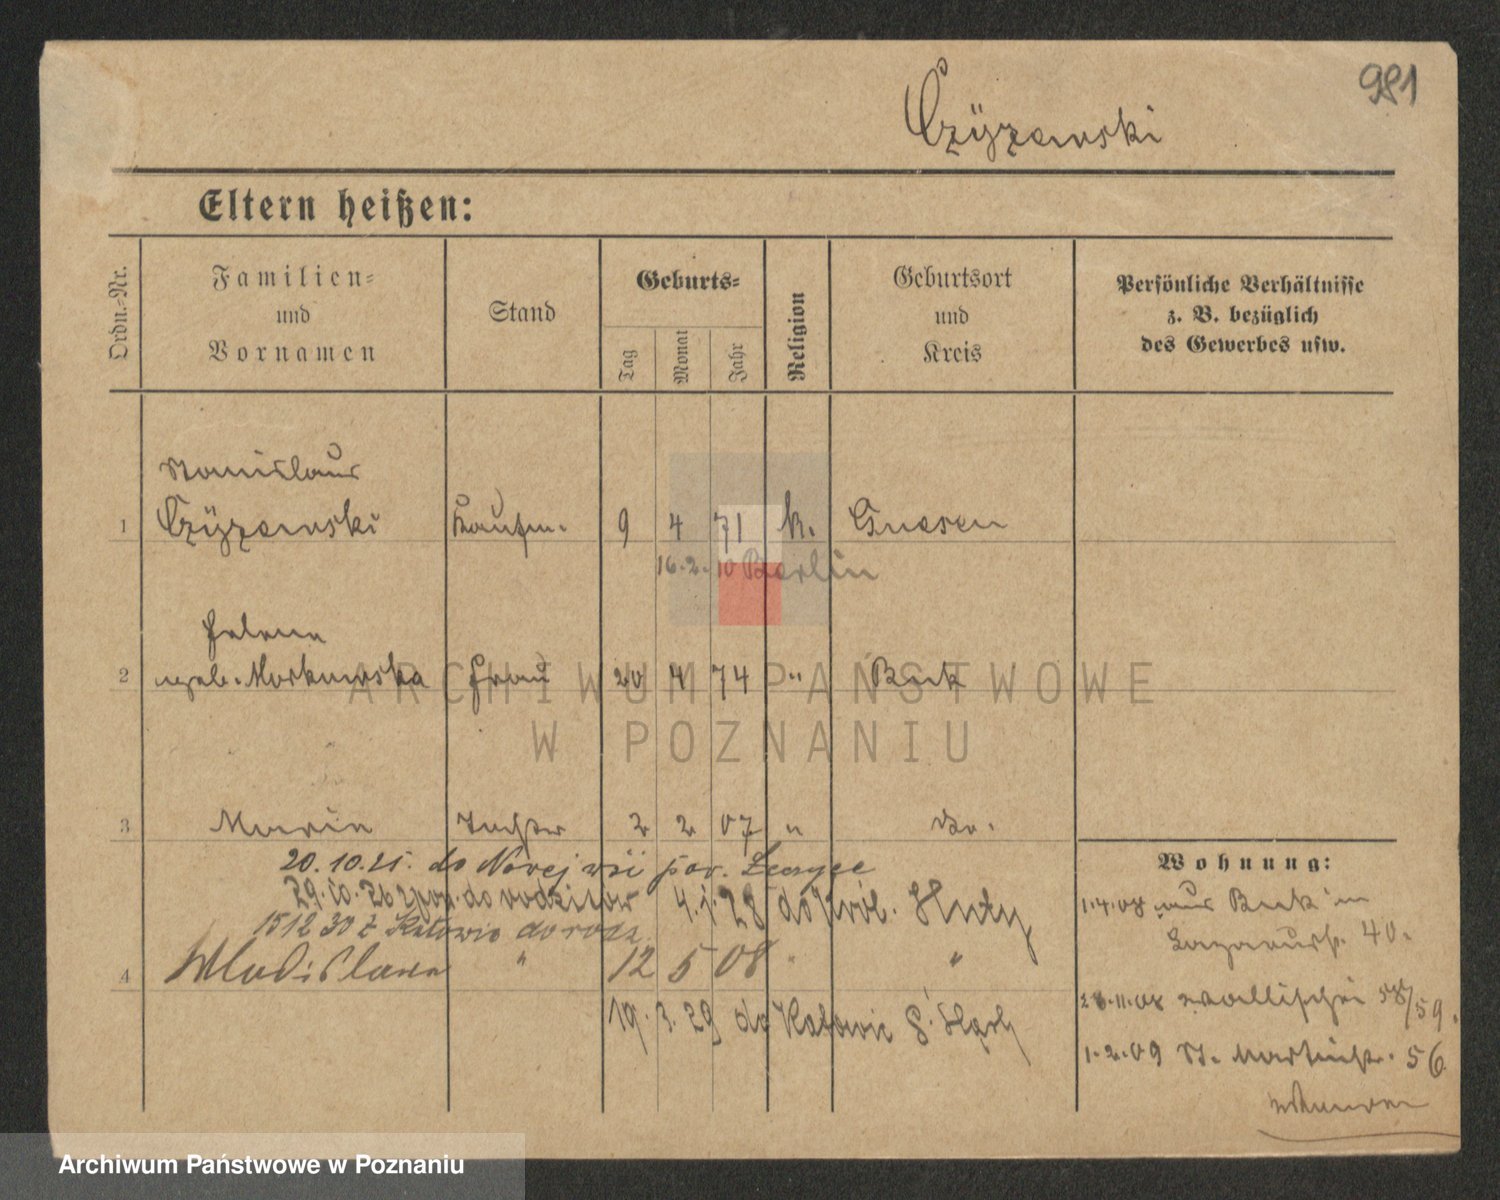 981
Czÿzewski
Eltern heißen:
Ordn.-Nr.
Familien-
und
Vornamen
Stand
Geburts-
Tag
Monat
Jahr
Religion
Geburtsort
und
Kreis
Persönliche Verhältnisse
z. B. bezüglich
des Gewerbes usw.
Stanislaus
1 Czÿzewski Kaufm. 9 4 71 k. Gnesen
16.2.10 Berlin
Helena
2 geb. Morkowska Frau 20 4 74 " Buk
3 Maria Tochter 2 2 07 " do.
20.10.25. do Nowej wsi pow.
29.10.26 do rodziców 4.1.28 do Król. Huty
15 12 30 z Katowic do rodz.
4 Wladislava " 12 5 08 " "
19.3.29 do Katowic G. Śląsk
Wohnung:
1.4.08 aus Buk in
Lazarusstr. 40.
28.11.08 Wallischei 58/59.
1.2.09 St. Martinstr. 56
ARCHIWUM PAŃSTWOWE
W POZNANIU
Archiwum Państwowe w Poznaniu